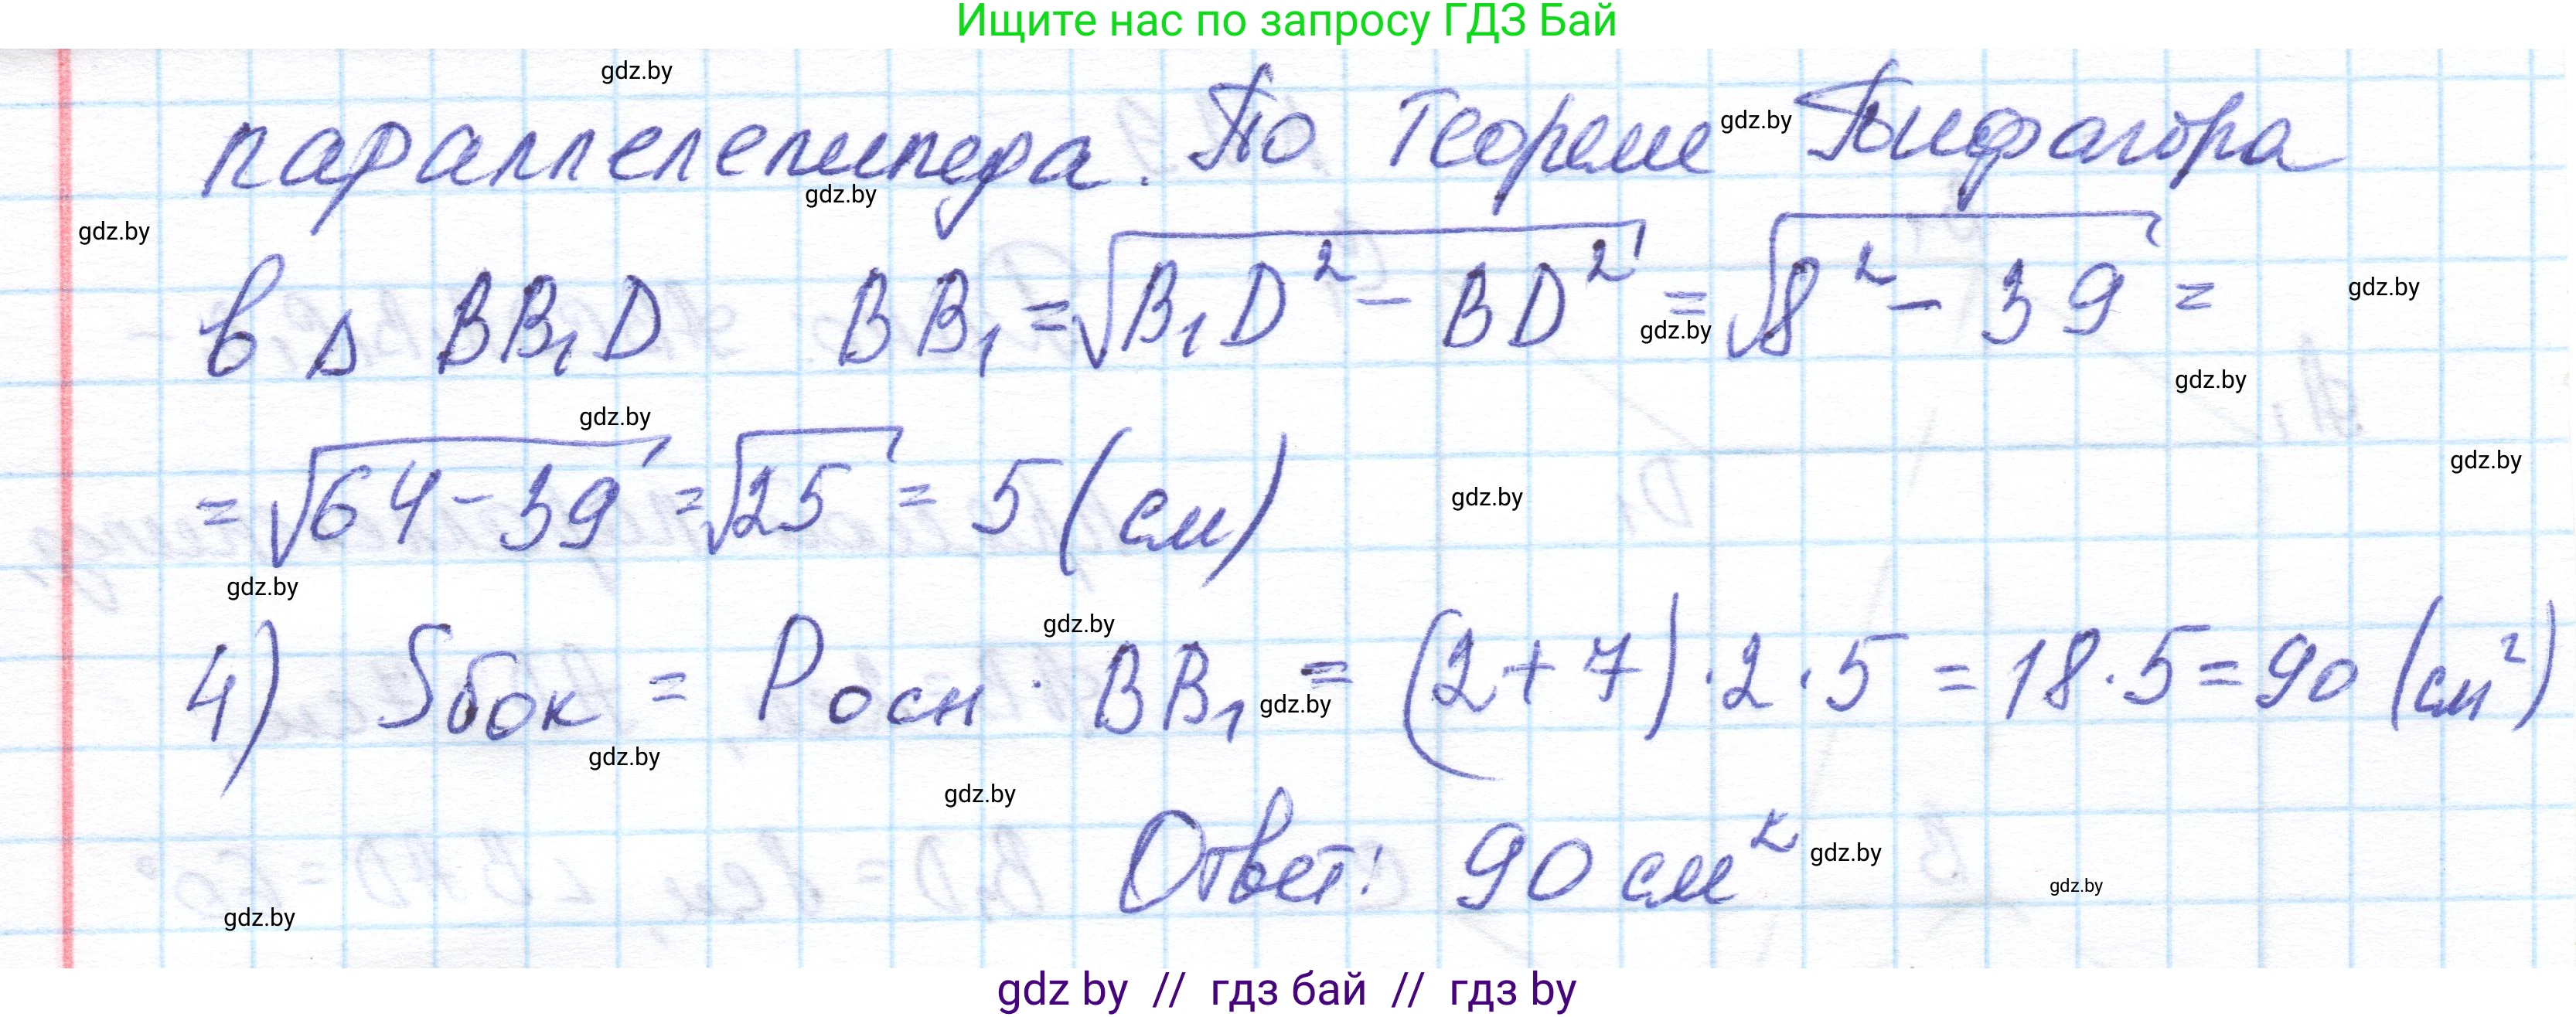 Ищите нас по запросу ГДЗ Бай
gdz.by
параллелепипеда. По теореме gdz.by Пифагора
gdz.by
gdz.by
в Δ BB₁D BB₁ = √(B₁D² - BD²) = √(8² - 39) =
gdz.by
gdz.by
gdz.by
gdz.by
= √(64 - 39) = √25 = 5 (см)
gdz.by
gdz.by
gdz.by
gdz.by
4) Sбок = Pосн · BB₁ = (2+7) · 2 · 5 = 18 · 5 = 90 (см²)
gdz.by
gdz.by
gdz.by
Ответ: 90 см²
gdz.by
gdz.by
gdz.by
gdz by // гдз бай // гдз by